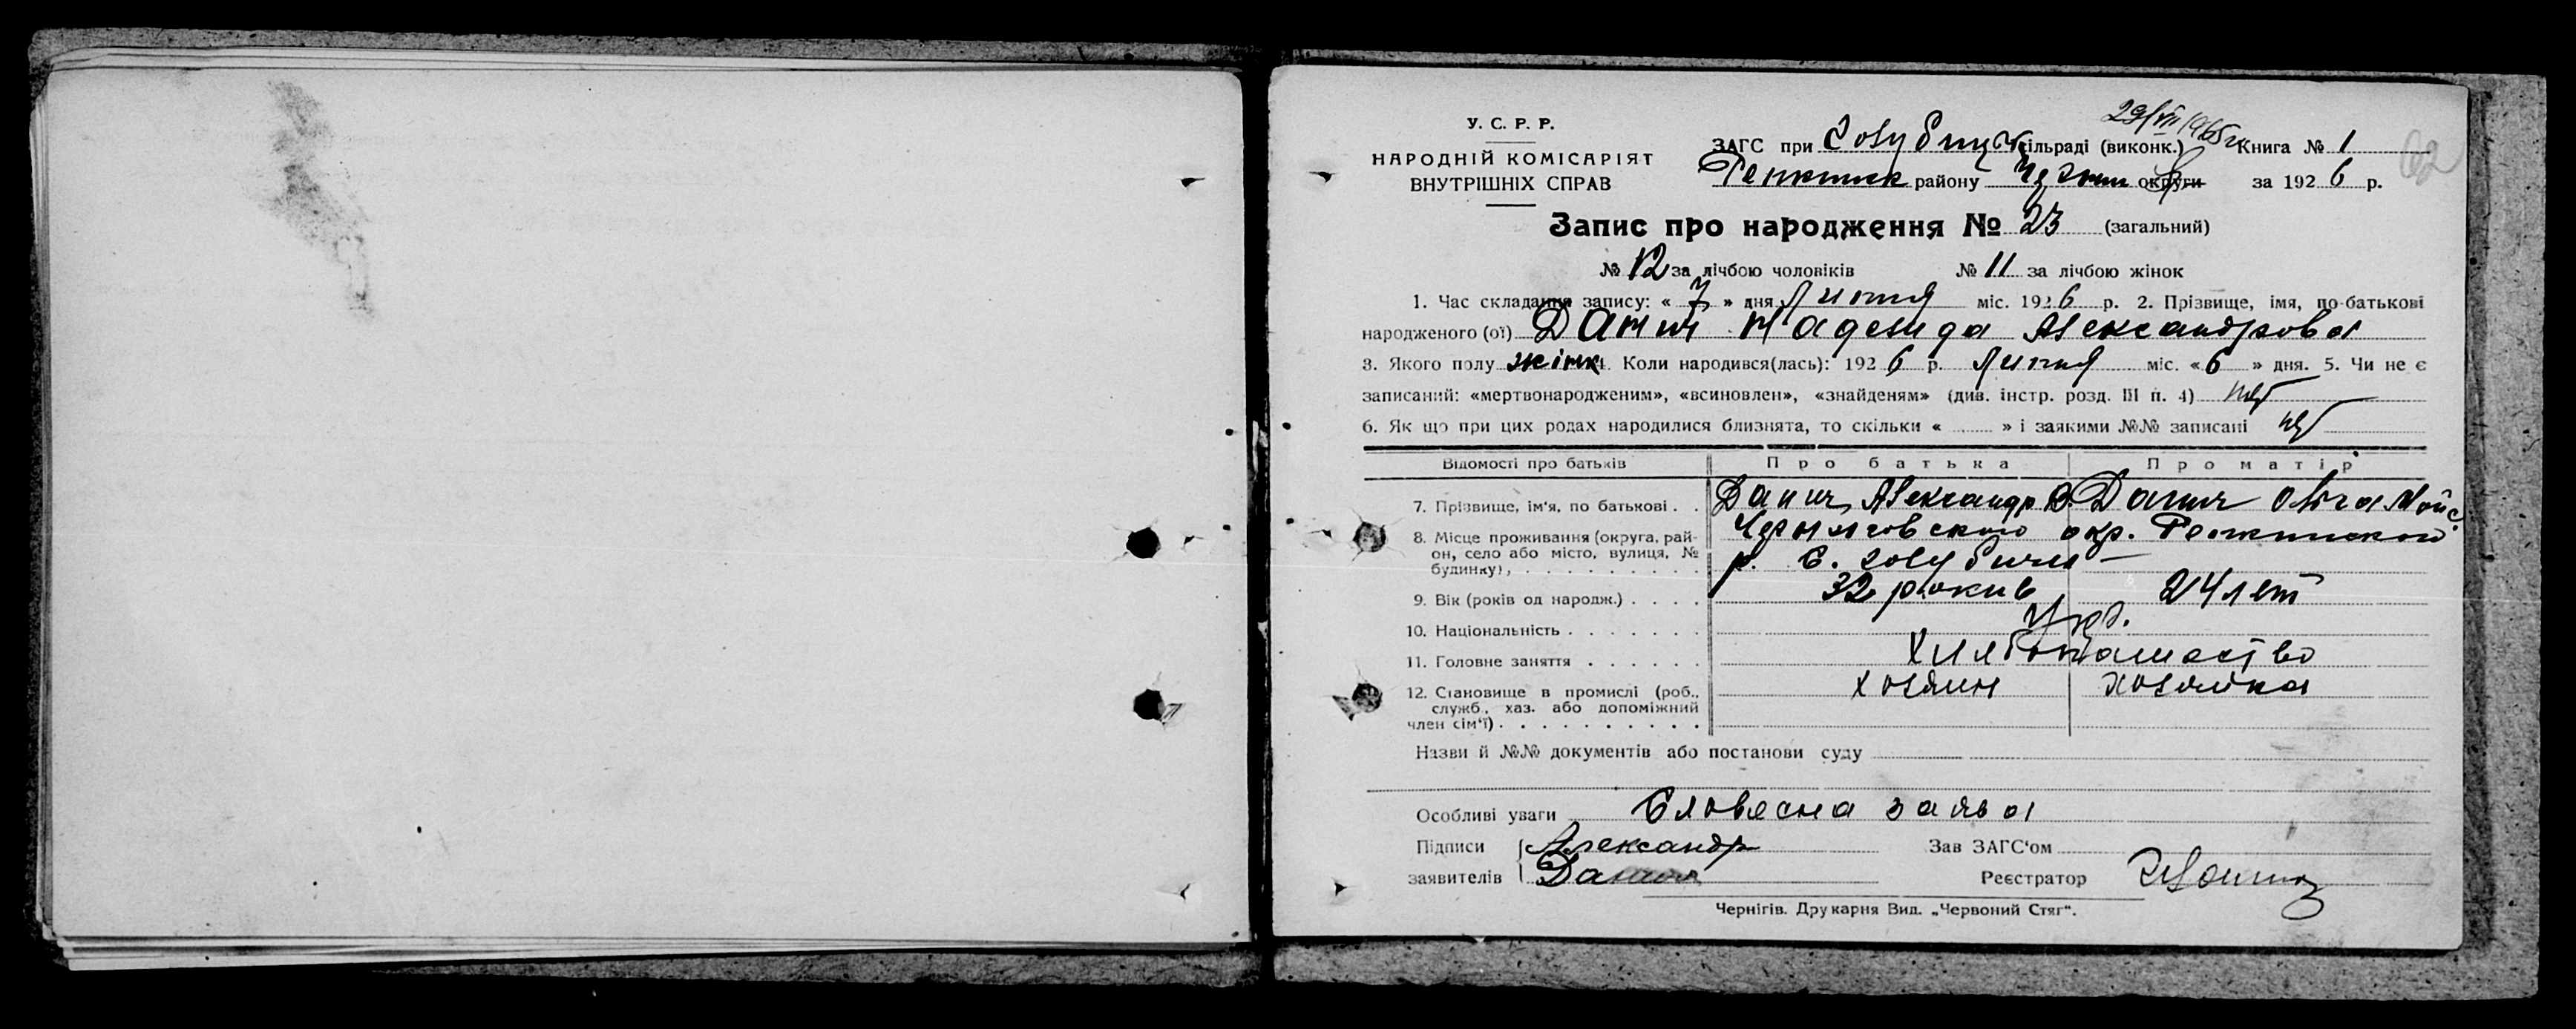 29/VII 1965 г
У. С. Р. Р.
НАРОДНІЙ КОМІСАРІЯТ
ВНУТРІШНІХ СПРАВ
ЗАГС при Голубицк сільраді (виконк.) Книга № 1
Репкинск району Черниг округи за 1926 р.
62
Запис про народження № 23 (загальний)
№ 12 за лічбою чоловіків № 11 за лічбою жінок
1. Час складання запису: « 7 » дня липня міс. 1926 р. 2. Прізвище, імя, по-батькові
народженого (ої) Данич Надежда Александровна
3. Якого полу жінк 4. Коли народився(лась): 1926 р. липня міс. « 6 » дня. 5. Чи не є
записаний: «мертвонародженим», «всиновлен», «знайденям» (див. інстр. розд. III п. 4) нет
6. Як що при цих родах народилися близнята, то скільки « » і заякими №№ записані нет
Відомості про батьків Про батька Про матір
7. Прізвище, ім'я, по батькові . . Данич Александр В. Данич Ольга Моис.
8. Місце проживання (округа, рай- Черниговского окр. Репкинского
он, село або місто, вулиця, № р. с. Голубичи
будинку), . . . . . . . . .
9. Вік (років од народж.) . . . . 32 рокив 24 лет
10. Національність . . . . . . . Укр.
11. Головне заняття . . . . . . Хлябопашество
12. Становище в промислі (роб., хозяин хозяйка
служб., хаз. або допоміжний
член сім'ї) . . . . . . . . . .
Назви й №№ документів або постанови суду
Особливі уваги Словесна заява
Підписи Александр Зав ЗАГС'ом
заявителів Данич Реєстратор
Чернігів. Друкарня Вид. „Червоний Стяг“.